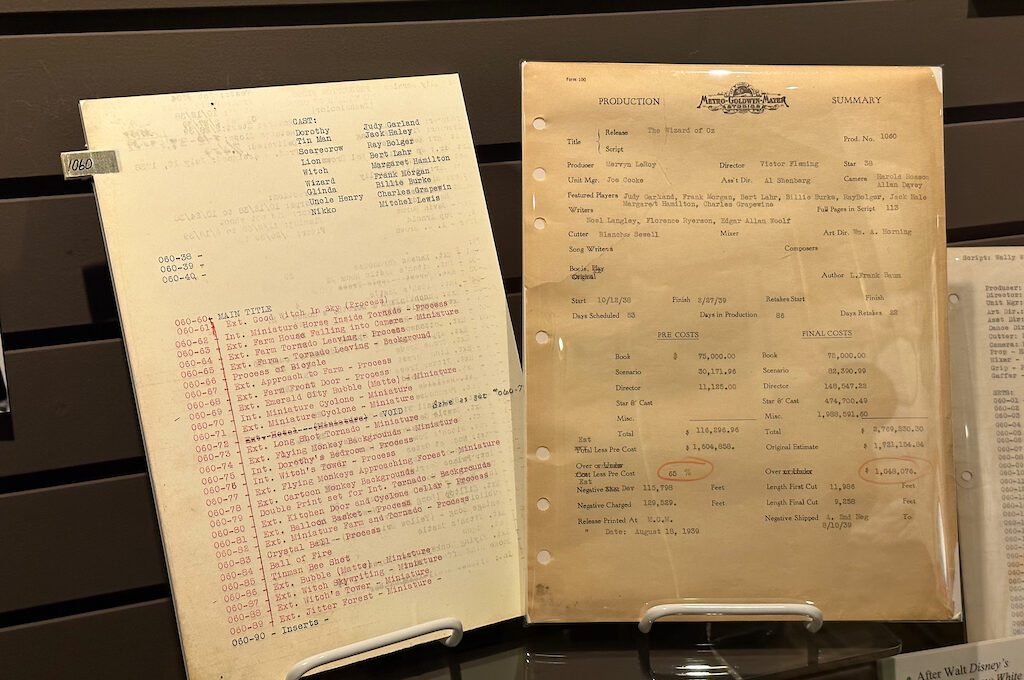 1060
CAST:
Dorothy Judy Garland
Tin Man Jack Haley
Scarecrow Ray Bolger
Lion Bert Lahr
Witch Margaret Hamilton
Wizard Frank Morgan
Glinda Billie Burke
Uncle Henry Charles Grapewin
Nikko Mitchel Lewis
060-38 -
060-39 -
060-40 -
MAIN TITLE
060-60 - Ext. Good Witch In Sky (Process)
060-61 - Int. Miniature Horse Inside Tornado - Process
060-62 - Ext. Farm House Falling into Camera - Miniature
060-63 - Ext. Farm Tornado Leaving - Process
060-64 - Ext. Farm - Tornado Leaving - Background
060-65 - Process of Bicycle
060-66 - Ext. Approach to Farm - Process
060-67 - Ext. Farm Front Door - Process
060-68 - Ext. Emerald City Bubble (Matte) - Miniature
060-69 - Int. Miniature Cyclone - Miniature
060-70 - Ext. Miniature Cyclone - Miniature
060-71 - Ext. Hotel - (Miniature) - VOID Same as set "060-7
060-72 - Ext. Long Shot Tornado - Miniature
060-73 - Ext. Flying Monkey Backgrounds - Miniature
060-74 - Int. Dorothy's Bedroom - Process
060-75 - Int. Witch's Tower - Process
060-76 - Ext. Flying Monkeys Approaching Forest - Miniature
060-77 - Ext. Cartoon Monkey Backgrounds
060-78 - Double Print set for Int. Tornado - Backgrounds
060-79 - Ext. Kitchen Door and Cyclone Cellar - Process
060-80 - Ext. Balloon Basket - Process
060-81 - Ext. Miniature Farm and Tornado - Process
060-82 - Crystal Ball - Process
060-83 - Ball of Fire
060-84 - Tinman Bee Shot
060-85 - Ext. Bubble (Matte) - Miniature
060-86 - Ext. Witch Skywriting - Miniature
060-87 - Ext. Witch's Tower - Miniature
060-88 - Ext. Jitter Forest - Miniature -
060-89
060-90 - Inserts -
Form 100
PRODUCTION METRO-GOLDWYN-MAYER STUDIOS SUMMARY
Title Release The Wizard of Oz Prod. No. 1060
Script
Producer Mervyn LeRoy Director Victor Fleming Star 38
Unit Mgr. Joe Cooke Ass't Dir. Al Shenberg Camera Harold Rosson
Allan Davey
Featured Players Judy Garland, Frank Morgan, Bert Lahr, Billie Burke, RayBolger, Jack Hale
Margaret Hamilton, Charles Grapewine
Writers Full Pages in Script 113
Noel Langley, Florence Ryerson, Edgar Allan Woolf
Cutter Blanche Sewell Mixer Art Dir. Wm. A. Horning
Song Writers Composers
Book, Play
Original Author L.Frank Baum
Start 10/12/38 Finish 3/27/39 Retakes Start Finish
Days Scheduled Days in Production Days Retakes
PRE COSTS FINAL COSTS
Book $ 75,000.00 Book 75,000.00
Scenario 30,171.96 Scenario 82,390.99
Director 11,125.00 Director 148,547.22
Star & Cast Star & Cast 474,700.49
Misc. Misc. 1,988,591.60
Total $ 116,296.96 Total $ 2,769,230.30
Est
Total Less Pre Cost $ 1,604,858. Original Estimate $ 1,721,154.84
Over or Under
Cost Less Pre Cost 65 % Over or Under $ 1,048,076.
Est
Negative Shot Day 115,798 Feet Length First Cut 11,986 Feet
Negative Charged 129,529. Feet Length Final Cut 9,238 Feet
Release Printed At M.G.M. Negative Shipped A. 2nd Neg To
8/10/39
" Date: August 18, 1939
Script: Wally W
Producer:
Director:
Unit Mgr:
Art Dir.:
Asst Dir:
Dance Di
Cutter:
Camera:
Prop -
Mixer -
Grip -
Gaffer -
SETS:
060-01
After Walt Disney's
Snow White